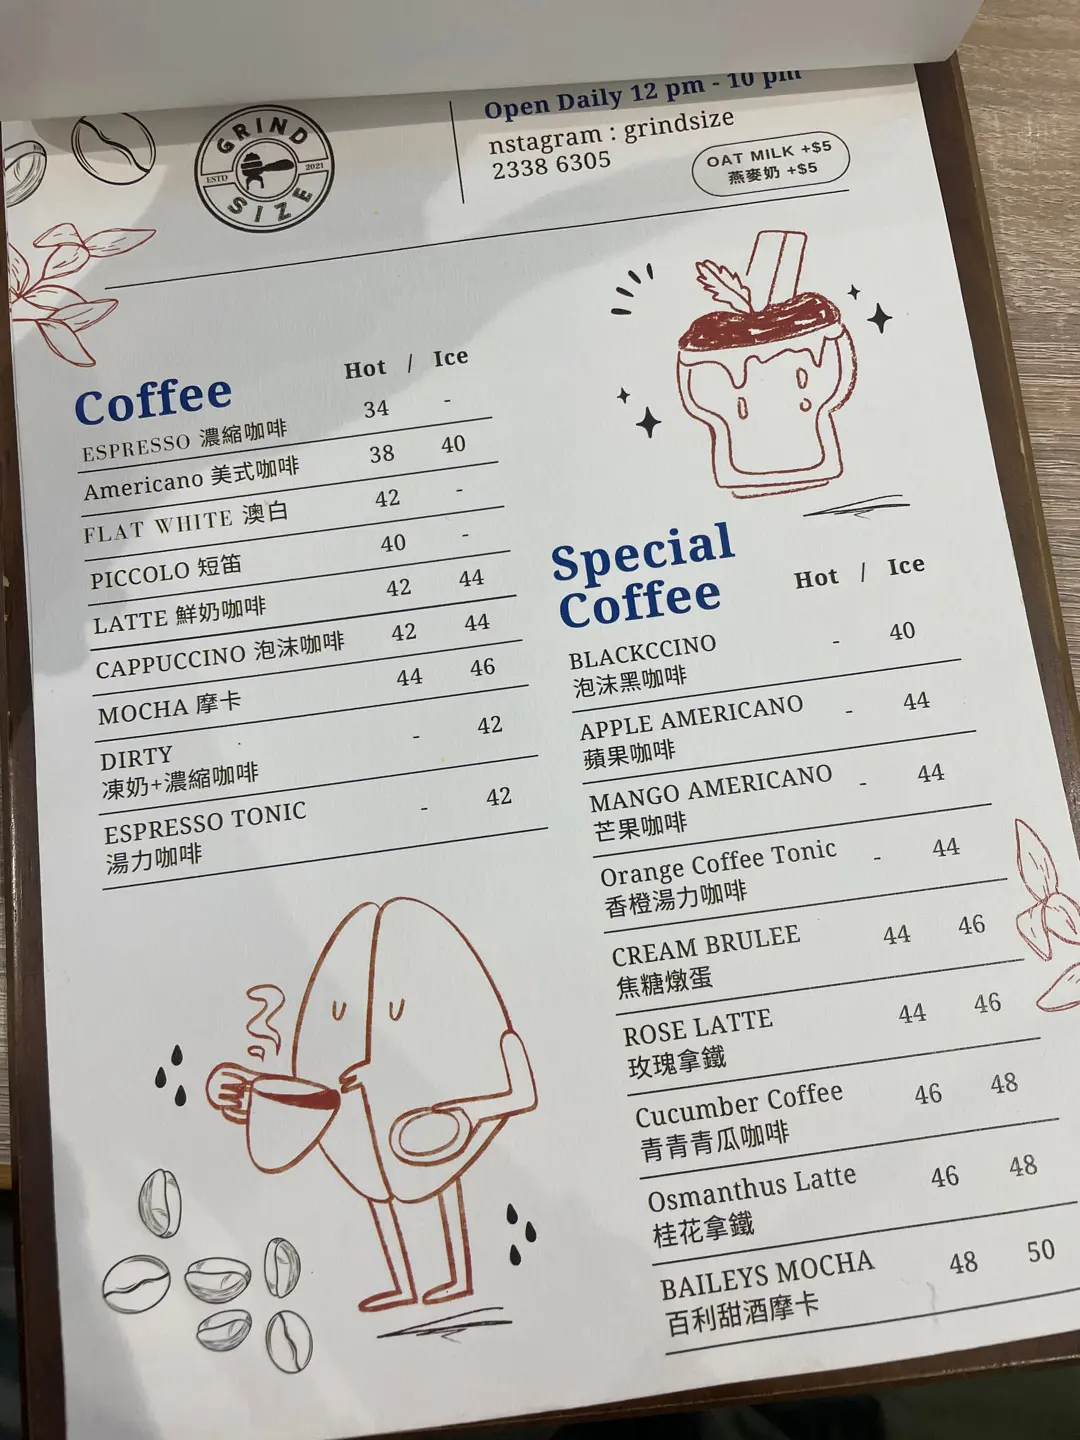 GRIND
ESTD 2021
SIZE
Open Daily 12 pm - 10 pm
nstagram : grindsize
2338 6305
OAT MILK +$5
燕麥奶 +$5
Coffee
Hot / Ice
ESPRESSO 濃縮咖啡 34 -
Americano 美式咖啡 38 40
FLAT WHITE 澳白 42 -
PICCOLO 短笛 40 -
LATTE 鮮奶咖啡 42 44
CAPPUCCINO 泡沫咖啡 42 44
MOCHA 摩卡 44 46
DIRTY - 42
凍奶+濃縮咖啡
ESPRESSO TONIC - 42
湯力咖啡
Special
Coffee
Hot / Ice
BLACKCCINO - 40
泡沫黑咖啡
APPLE AMERICANO - 44
蘋果咖啡
MANGO AMERICANO - 44
芒果咖啡
Orange Coffee Tonic - 44
香橙湯力咖啡
CREAM BRULEE 44 46
焦糖燉蛋
ROSE LATTE 44 46
玫瑰拿鐵
Cucumber Coffee 46 48
青青青瓜咖啡
Osmanthus Latte 46 48
桂花拿鐵
BAILEYS MOCHA 48 50
百利甜酒摩卡